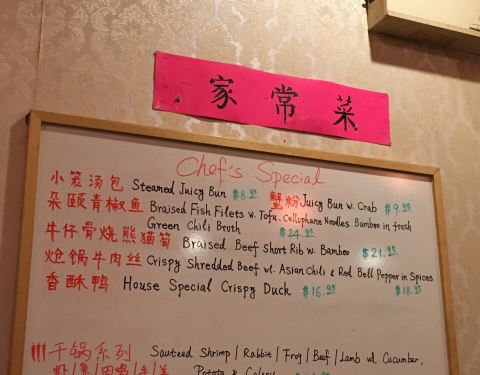 家常菜
Chef's Special
小笼汤包 Steamed Juicy Bun $8.95 蟹粉 Juicy Bun w. Crab $9.95
朵颐青椒鱼 Braised Fish Filets w. Tofu. Cellophane Noodles. Bamboo in fresh
Green Chili Broth $24.95
牛仔骨烧熊猫笋 Braised Beef Short Rib w. Bamboo $21.95
炝锅牛肉丝 Crispy Shredded Beef w. Asian Chili & Red Bell Pepper in Spices
香酥鸭 House Special Crispy Duck $16.95 $18.95
干锅系列 Sauteed Shrimp / Rabbit / Frog / Beef / Lamb w. Cucumber.
Potato &